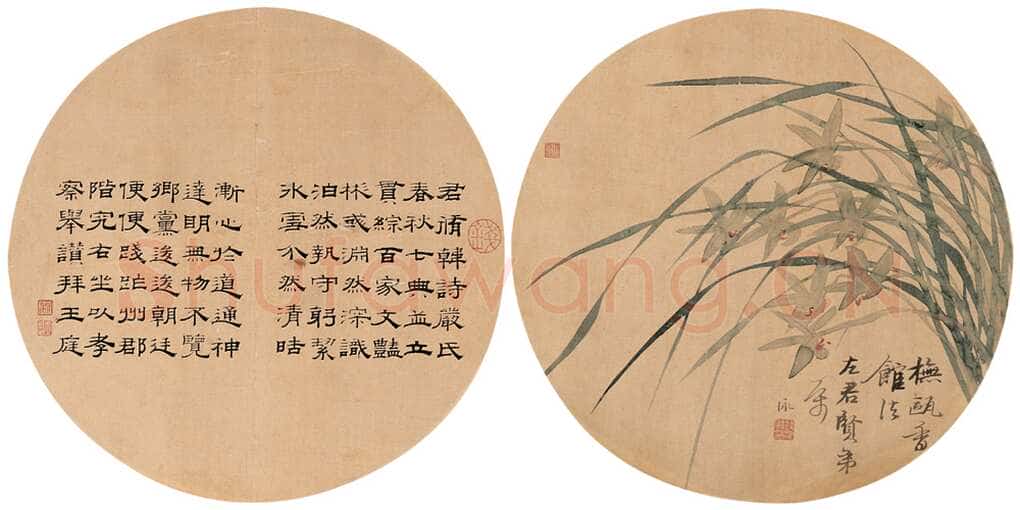 君脩韓詩嚴氏
春秋七典並立
貫綜百家文豔
彬彧淵然深識
泊然執守躬絜
冰雪介然清
漸心於道通神
達明無物不覽
鄉黨逡逡朝廷
便便踐阯州郡
階完右坐以孝
察舉讚拜王庭
橅甌香
館法
左君賢弟
属
shufawang.cn